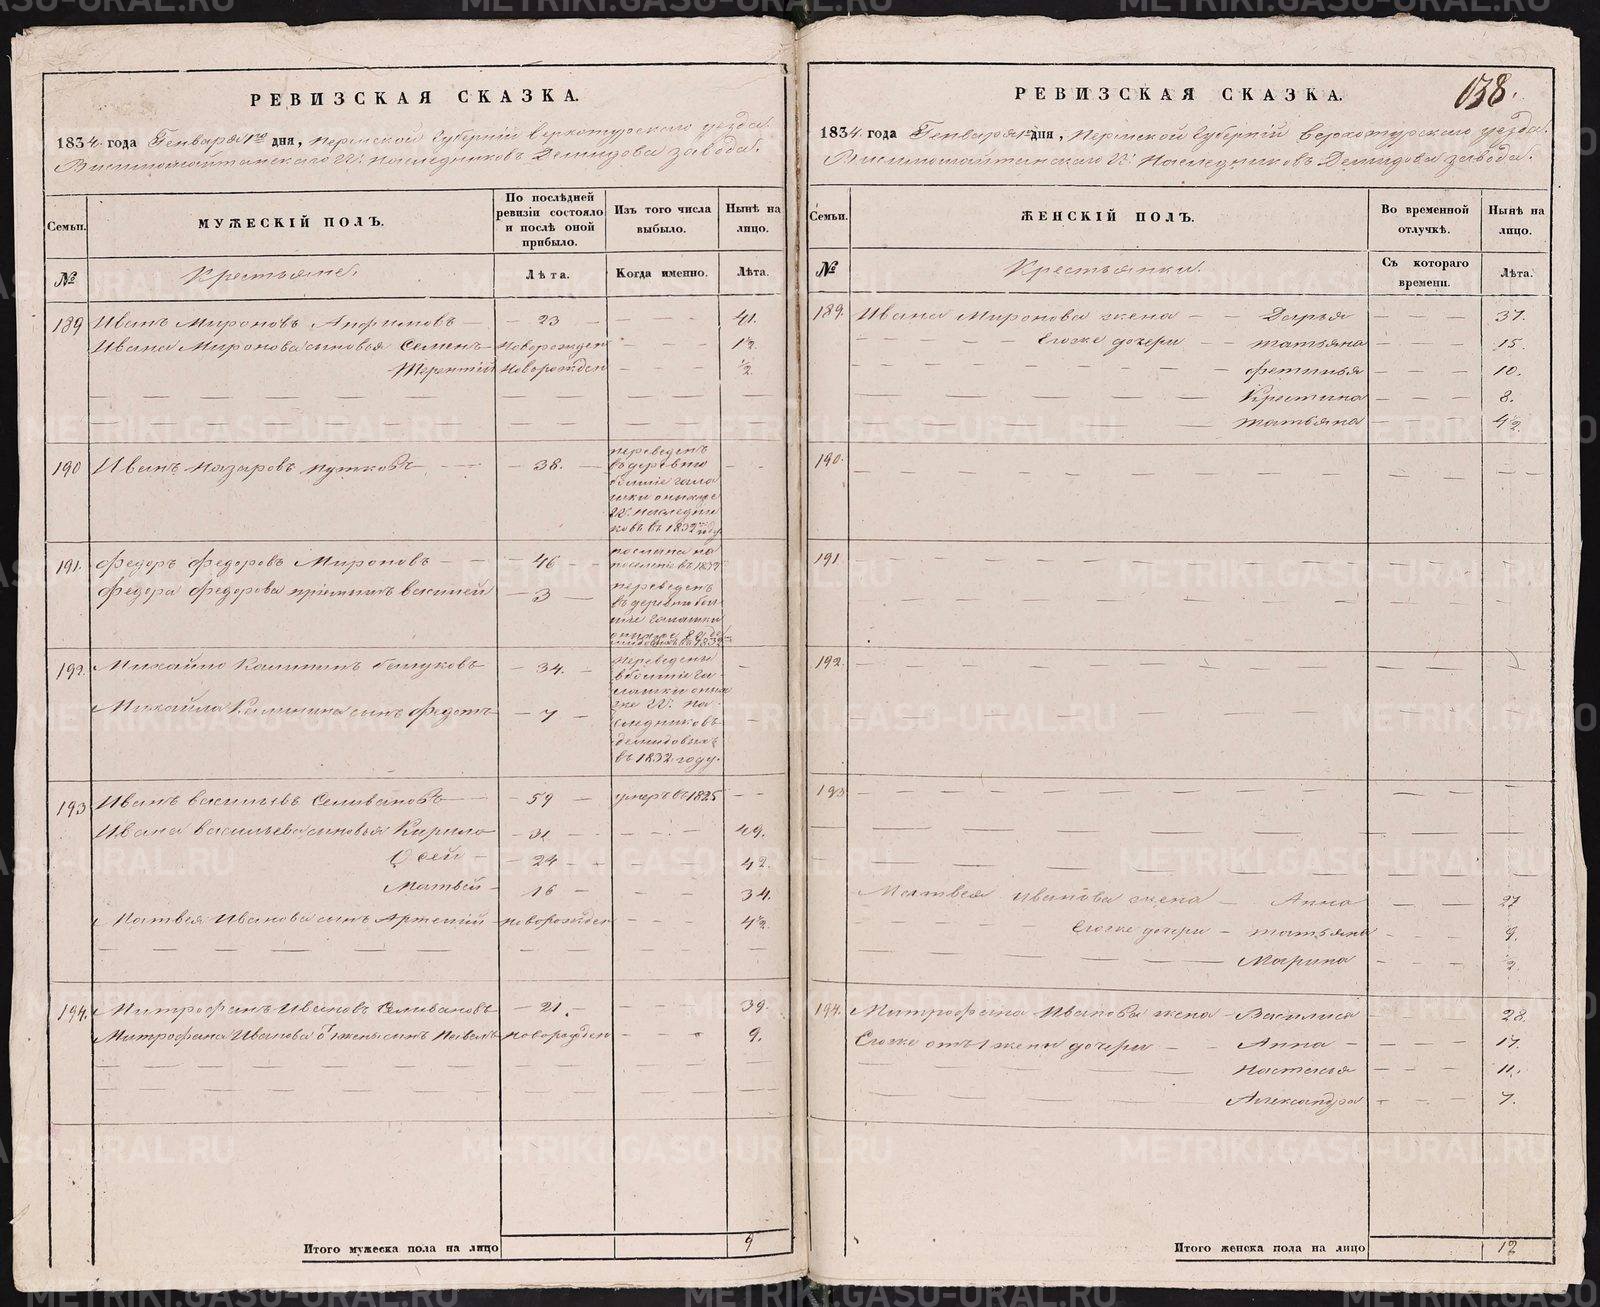 РЕВИЗСКАЯ СКАЗКА.
1834. года Генваря 1го дня, Пермской Губернiи Верхотурского уезда.
Висимошайтанского Гг: Наследниковъ Демидова завода.
Семьи.
МУЖЕСКIЙ ПОЛЪ.
По послѣдней ревизiи состояло и послѣ оной прибыло.
Изъ того числа выбыло.
Нынѣ на лицо.
№
Крестьяне.
Лѣта.
Когда именно.
Лѣта.
189 Иванъ Мироновъ Анфимовъ — 23 — — — — 41.
Ивана Миронова сыновья Семенъ — Новорожден — — — 1½
Терентiй Новорожден — — — ½.
190 Иванъ Назаровъ — 38. —
переведенъ
въ деревню
Гг: наследни
ковъ въ 1832 году
191. Федоръ Федоровъ Мироновъ — — 46 —
посланъ на
поселенiе въ
Федора Федорова прiемышъ Василей — 3 —
переведенъ
192. Михайло Калининъ — 34. —
переведены
Михайла Калинина сынъ Федотъ — 7 —
же Гг: на
следниковъ
Демидовыхъ
въ 1832. году.
193 Иванъ Васильевъ Селивановъ — 59 — умеръ въ 1825 — —
Ивана Васильева сыновья Кирило — 31 — — — — 49.
Осей — — 24 — — — — 42.
Матвей — — 16 — — — — 34.
Матвея Иванова сынъ Артемiй — новорожден — — — 4½.
194. Митрофанъ Ивановъ Селивановъ — 21. — — — — 39.
Митрофана Иванова от 1 жены сынъ Павелъ — новорожден — — — 9.
Итого мужеска пола на лицо 9
138.
РЕВИЗСКАЯ СКАЗКА.
1834. года Генваря 1го дня, Пермской Губернiй Верхотурского уезда.
Висимошайтанского Гг: Наследниковъ Демидова завода.
Семьи.
ЖЕНСКIЙ ПОЛЪ.
Во временной отлучкѣ.
Нынѣ на лицо.
№
Крестьянки.
Съ котораго времени.
Лѣта.
189. Ивана Миронова жена — — Дарья — — — 37.
Егоже дочери — — Татьяна — — — 15.
Фетинья — — — 10.
Крестина — — — 8.
Татьяна — — — 4½.
190.
191
192.
193
Матвея Иванова жена — Анна — — — 27
Егоже дочери — Татьяна — — — 9.
Марина — — — ½.
194. Митрофана Иванова жена — Василиса — — — 28.
Егоже от 1 жены дочери — — Анна — — — — 17.
Настасья — — — 11.
Александра — — — 7.
Итого женска пола на лицо 12
METRIKI.GASO-URAL.RU